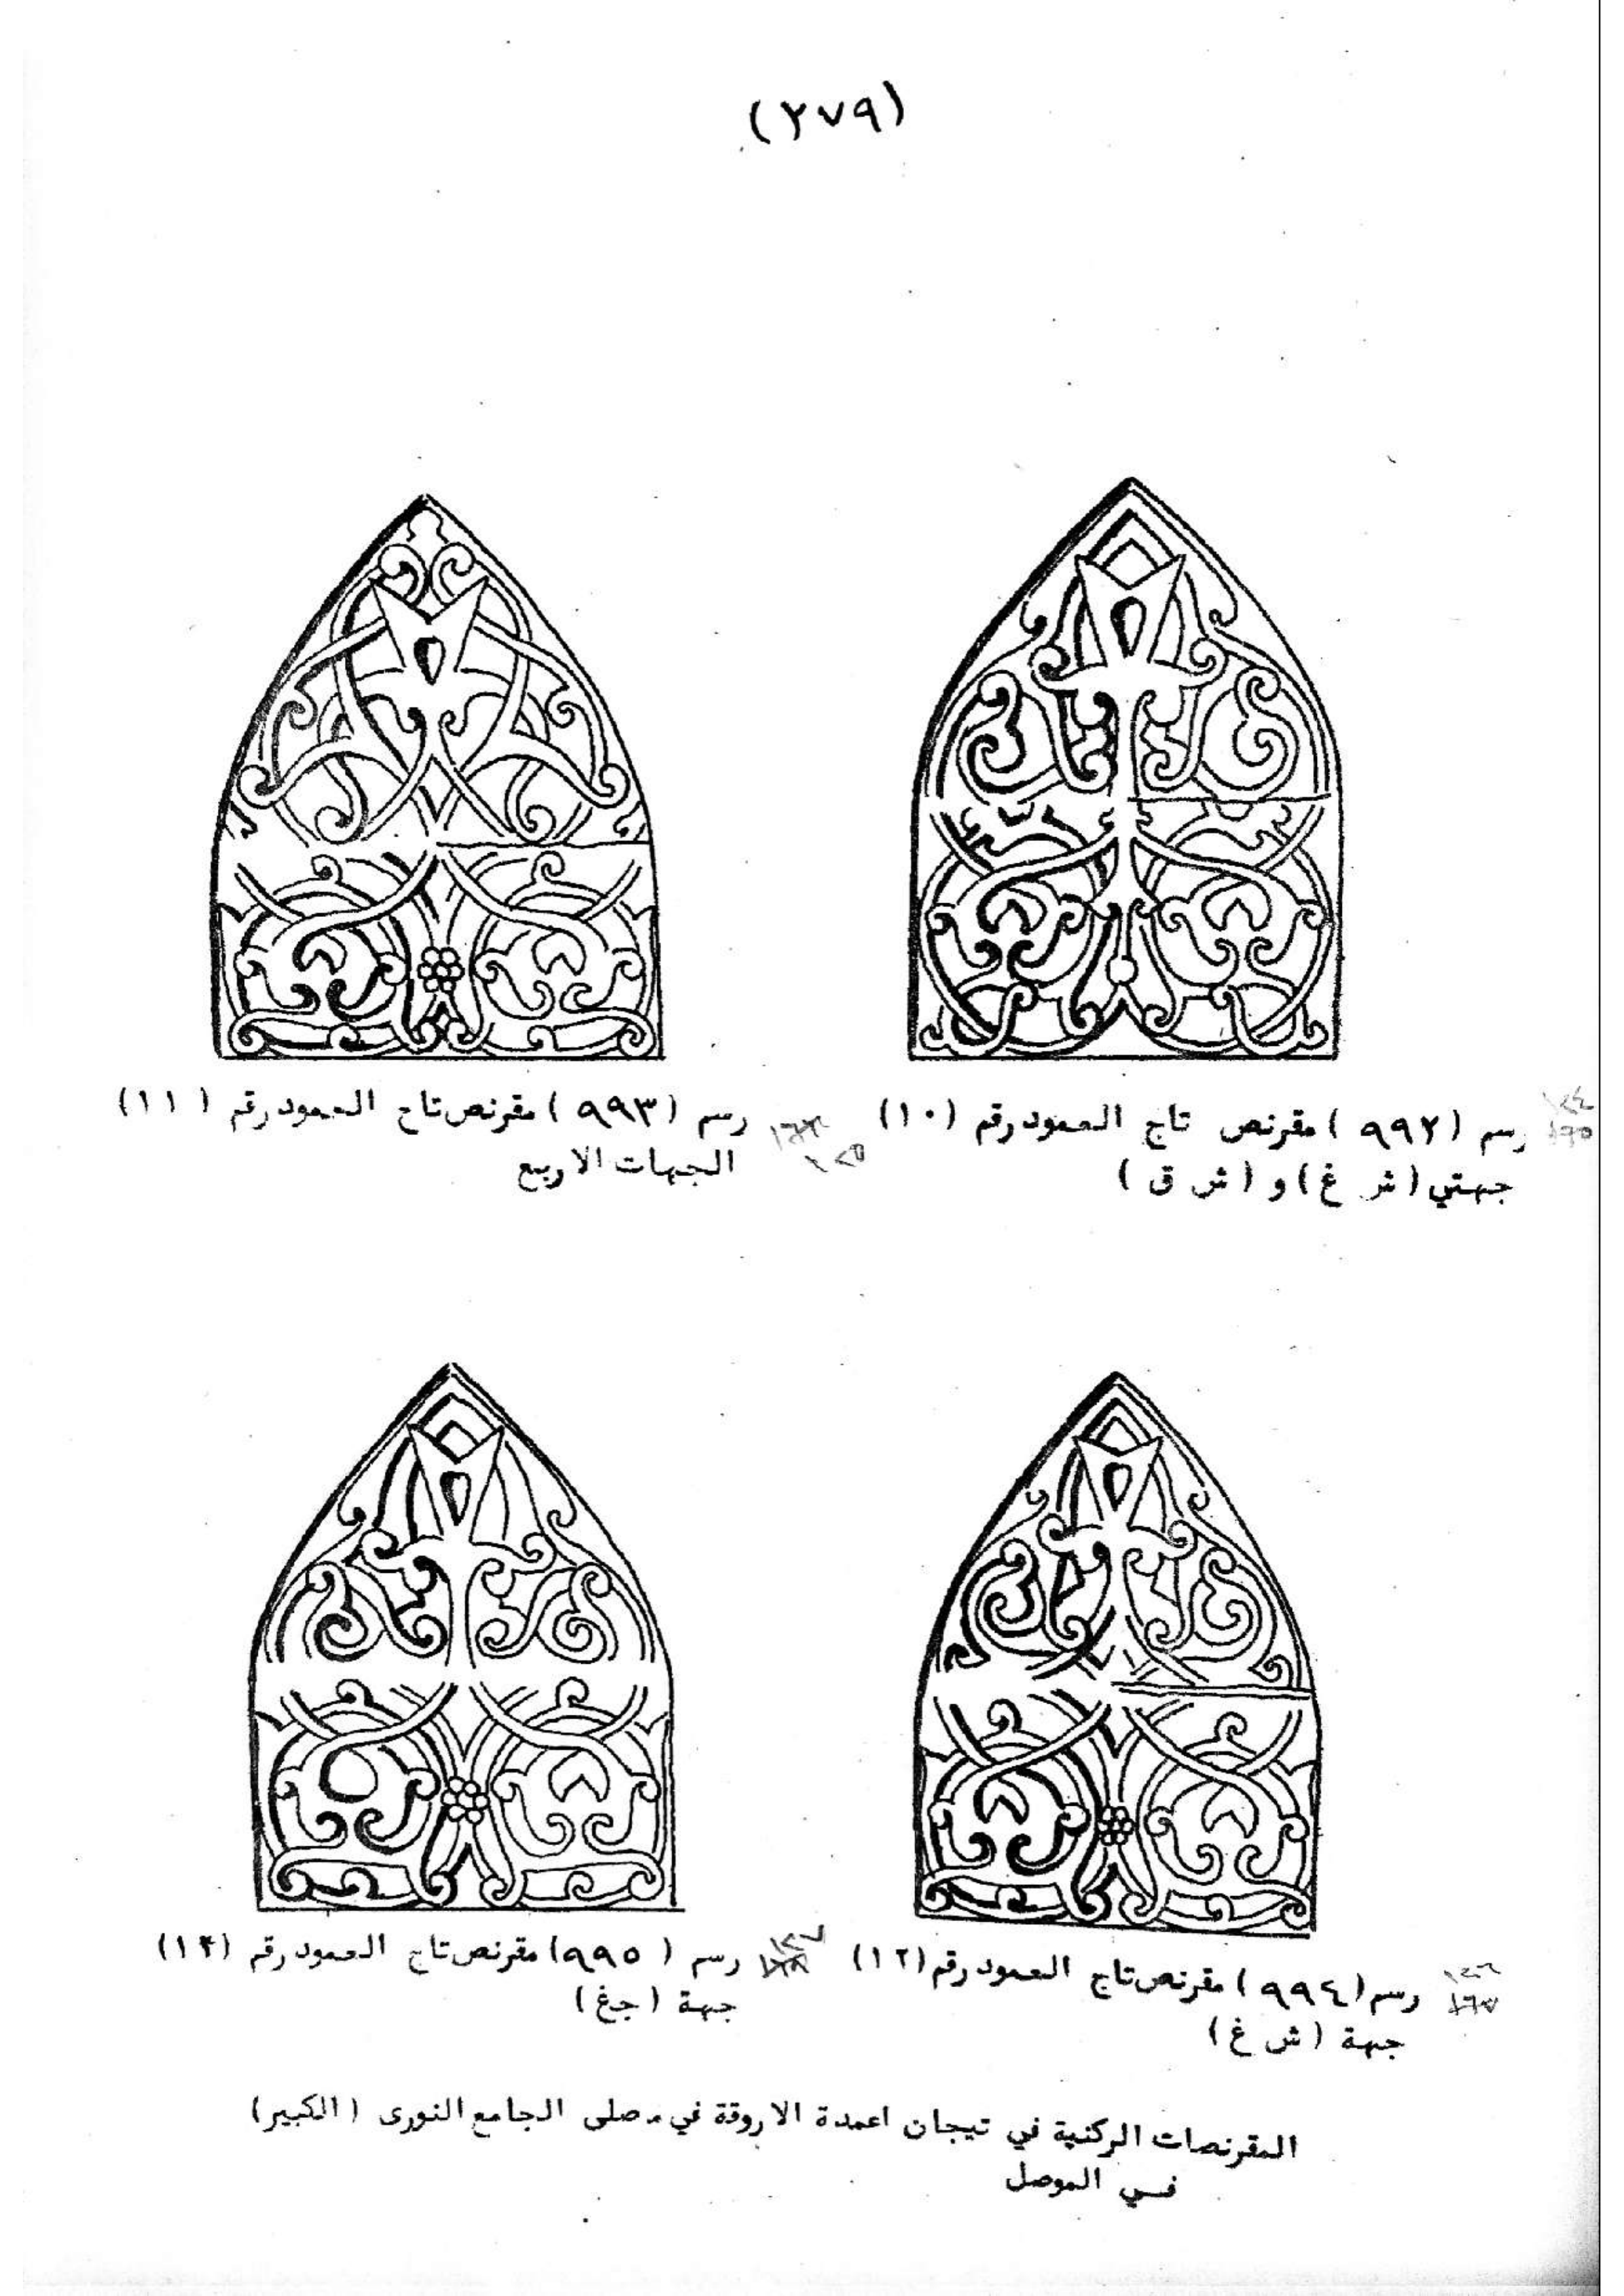 (٢٧٩)
رسم (٩٩٢) مقرنص تاج العمود رقم (١٠)
جهتي (ش غ) و (ش ق)
رسم (٩٩٣) مقرنص تاج العمود رقم (١١)
الجهات الاربع
رسم (٩٩٤) مقرنص تاج العمود رقم (١٢)
جهة (ش غ)
رسم (٩٩٥) مقرنص تاج العمود رقم
جهة (ج غ)
المقرنصات الركنية في تيجان اعمدة الاروقة في مصلى الجامع النورى (الكبير)
فـي الموصل